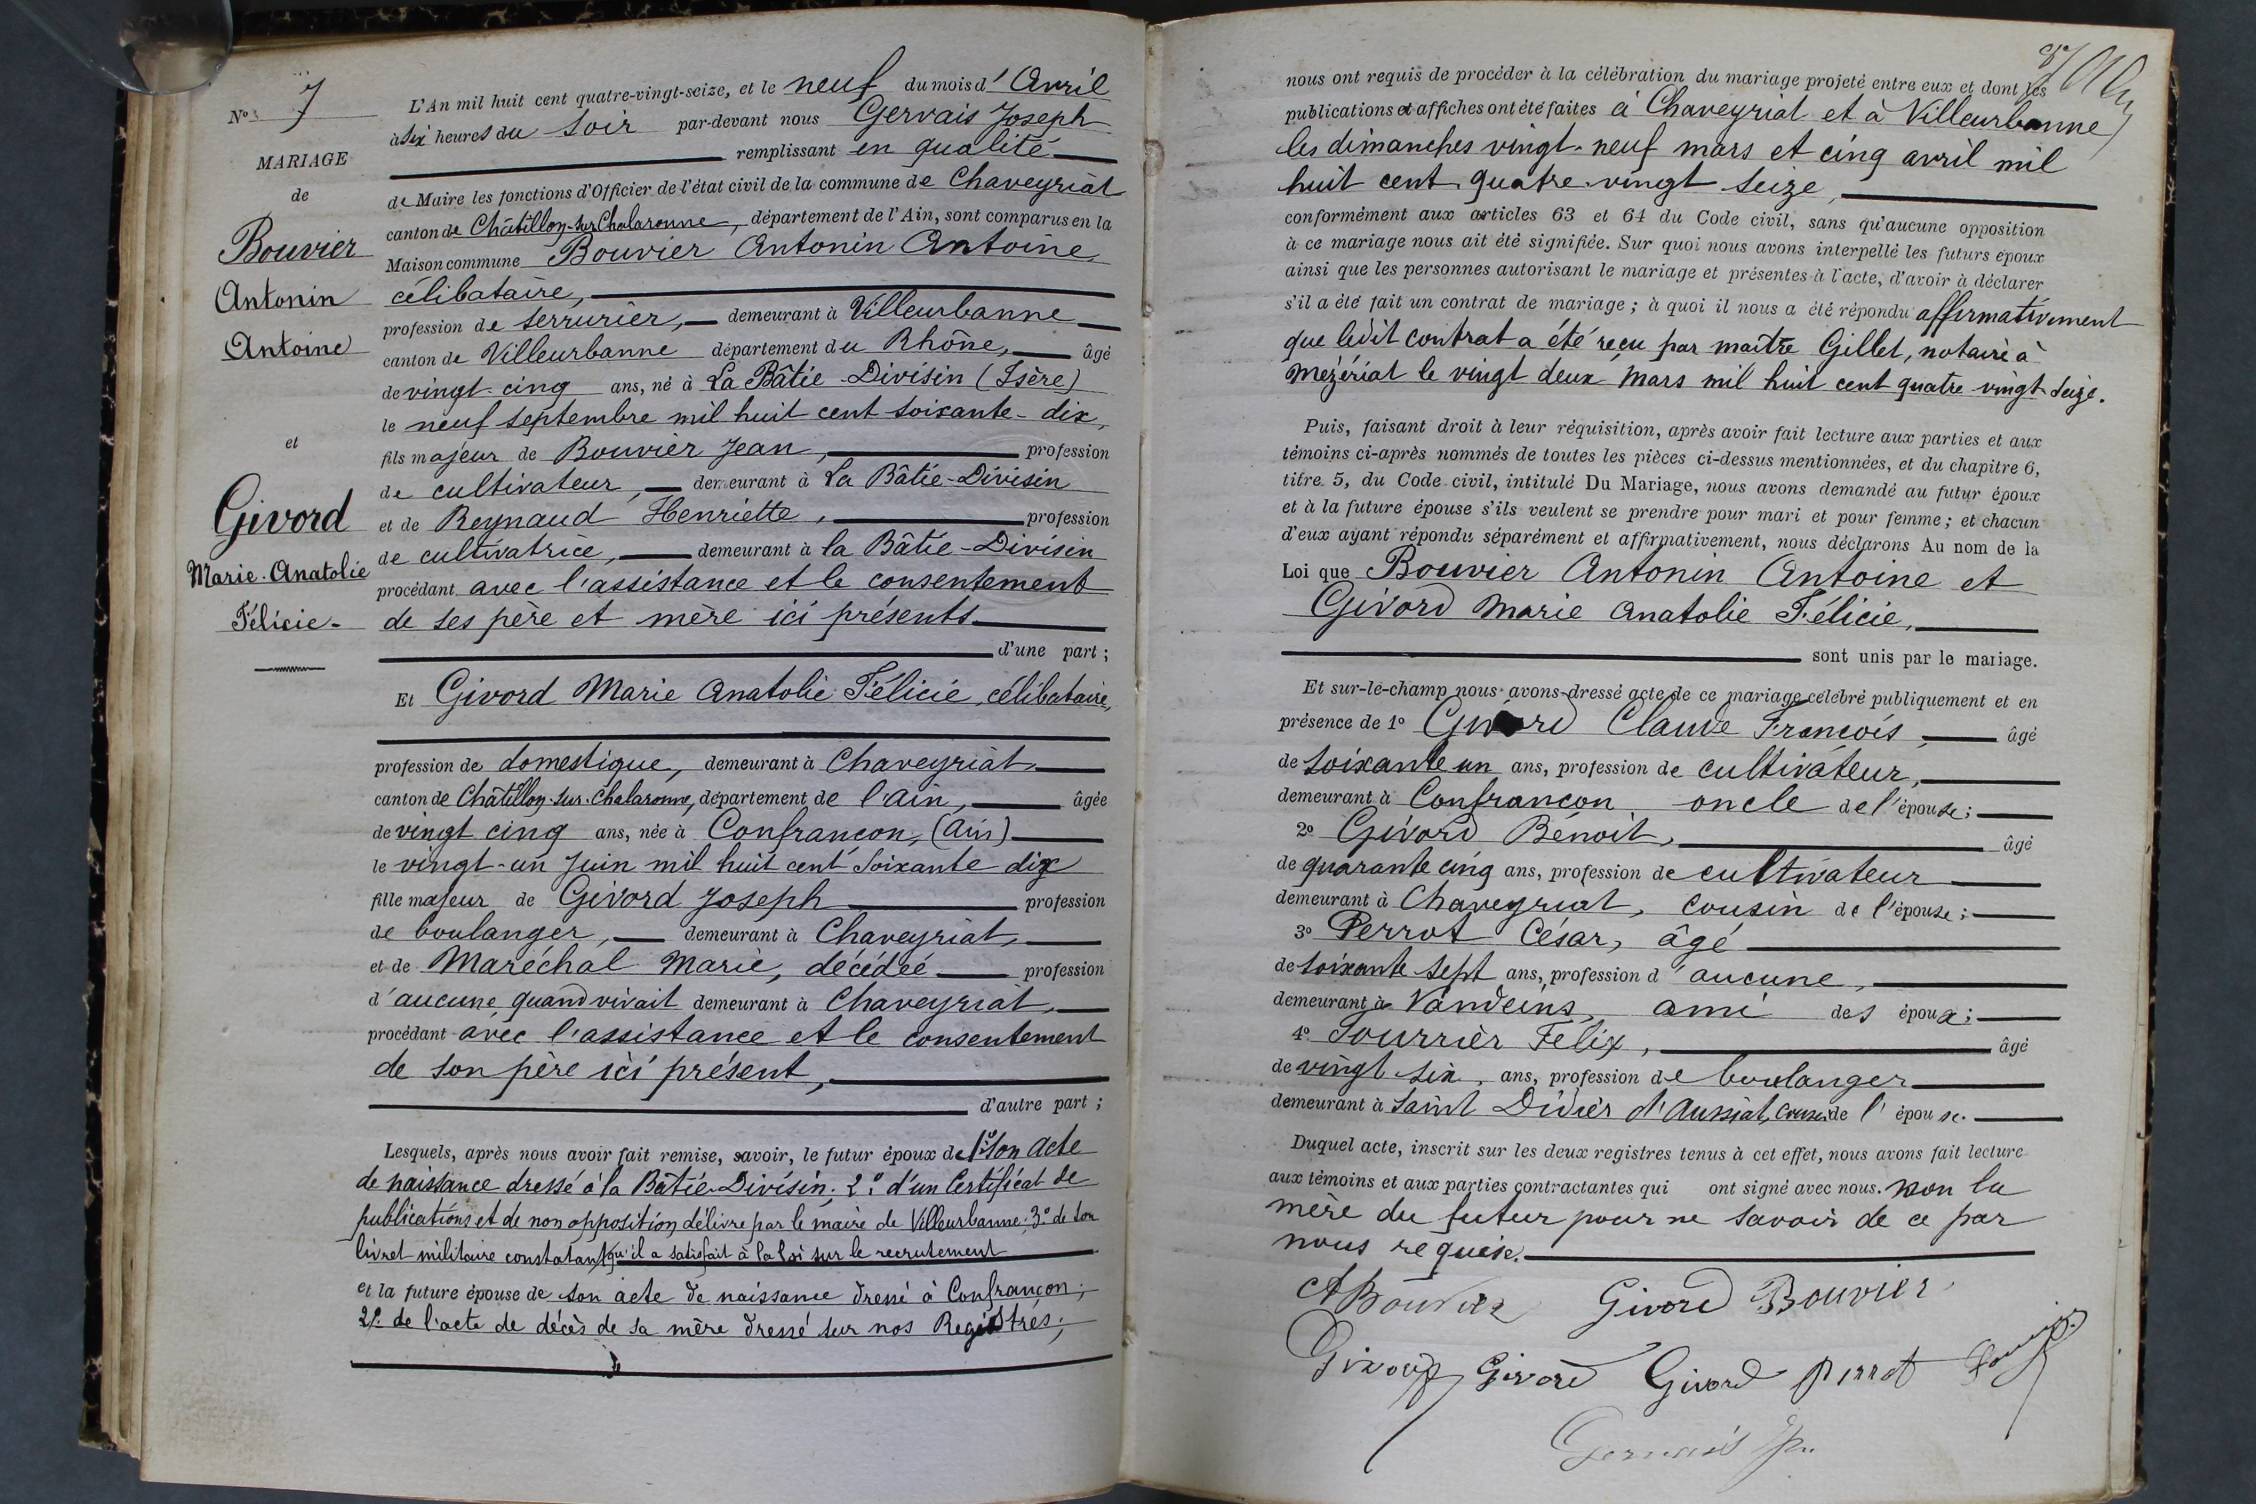 N° 7
MARIAGE
de
Bouvier
Antonin
Antoine
et
Givord
Marie-Anatolie
Félicie-
L'An mil huit cent quatre-vingt-seize, et le neuf du mois d'Avril
à six heures du soir par-devant nous Gervais Joseph
remplissant en qualité
de Maire les fonctions d'Officier de l'état civil de la commune de Chaveyriat
canton de Châtillon-sur-Chalaronne, département de l'Ain, sont comparus en la
Maison commune Bouvier Antonin Antoine
célibataire,
profession de serrurier, demeurant à Villeurbanne
canton de Villeurbanne département du Rhône, âgé
de vingt-cinq ans, né à La Bâtie-Divisin (Isère)
le neuf septembre mil huit cent soixante-dix,
fils majeur de Bouvier Jean, profession
de cultivateur, demeurant à La Bâtie-Divisin
et de Reynaud Henriette, profession
de cultivatrice, demeurant à la Bâtie-Divisin
procédant avec l'assistance et le consentement
de ses père et mère ici présents
d'une part ;
Et Givord Marie Anatolie Félicie, célibataire,
profession de domestique, demeurant à Chaveyriat,
canton de Châtillon-sur-Chalaronne, département de l'Ain, âgée
de vingt cinq ans, née à Confrançon, (Ain)
le vingt-un Juin mil huit cent soixante dix
fille majeur de Givord Joseph profession
de boulanger, demeurant à Chaveyriat,
et de Maréchal Marie, décédée profession
d'aucune quand vivait demeurant à Chaveyriat,
procédant avec l'assistance et le consentement
de son père ici présent,
d'autre part ;
Lesquels, après nous avoir fait remise, savoir, le futur époux de 1° son acte
de naissance dressé à la Bâtie-Divisin; 2° d'un Certificat de
publications et de non opposition délivré par le maire de Villeurbanne; 3° de son
livret militaire constatant qu'il a satisfait à la loi sur le recrutement
et la future épouse de son acte de naissance dressé à Confrançon;
2° de l'acte de décès de sa mère dressé sur nos Registres;
nous ont requis de procéder à la célébration du mariage projeté entre eux et dont les
publications et affiches ont été faites à Chaveyriat et à Villeurbanne
les dimanches vingt-neuf mars et cinq avril mil
huit cent quatre-vingt seize,
conformément aux articles 63 et 64 du Code civil, sans qu'aucune opposition
à ce mariage nous ait été signifiée. Sur quoi nous avons interpellé les futurs époux
ainsi que les personnes autorisant le mariage et présentes à l'acte, d'avoir à déclarer
s'il a été fait un contrat de mariage ; à quoi il nous a été répondu affirmativement
que ledit contrat a été reçu par maître Gillet, notaire à
Mézériat le vingt deux mars mil huit cent quatre vingt seize.
Puis, faisant droit à leur réquisition, après avoir fait lecture aux parties et aux
témoins ci-après nommés de toutes les pièces ci-dessus mentionnées, et du chapitre 6,
titre 5, du Code civil, intitulé Du Mariage, nous avons demandé au futur époux
et à la future épouse s'ils veulent se prendre pour mari et pour femme ; et chacun
d'eux ayant répondu séparément et affirmativement, nous déclarons Au nom de la
Loi que Bouvier Antonin Antoine et
Givord Marie Anatolie Félicie,
sont unis par le mariage.
Et sur-le-champ nous avons dressé acte de ce mariage célébré publiquement et en
présence de 1° Givord Claude François, âgé
de soixante un ans, profession de cultivateur,
demeurant à Confrançon oncle de l'épouse ;
2° Givord Benoit, âgé
de quarante cinq ans, profession de cultivateur
demeurant à Chaveyriat, cousin de l'épouse ;
3° Perrot César, âgé
de soixante sept ans, profession d'aucune,
demeurant à Vandeins, ami des époux ;
4° Sourrier Félix, âgé
de vingt six ans, profession de boulanger
demeurant à Saint Didier d'Aussiat, cousin de l'épouse.
Duquel acte, inscrit sur les deux registres tenus à cet effet, nous avons fait lecture
aux témoins et aux parties contractantes qui ont signé avec nous. Non la
mère du futur pour ne savoir de ce par
nous requise.
A Bouvier Givord Bouvier
Givord Givord Givord Perrot
Gervais J